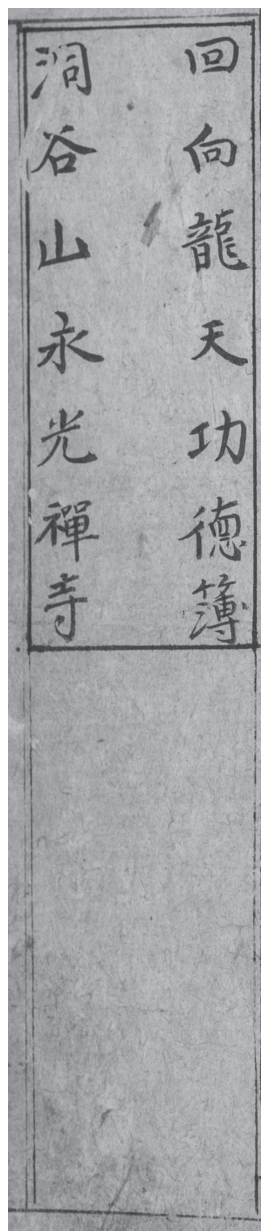 回向龍天功德簿
洞谷山永光禪寺